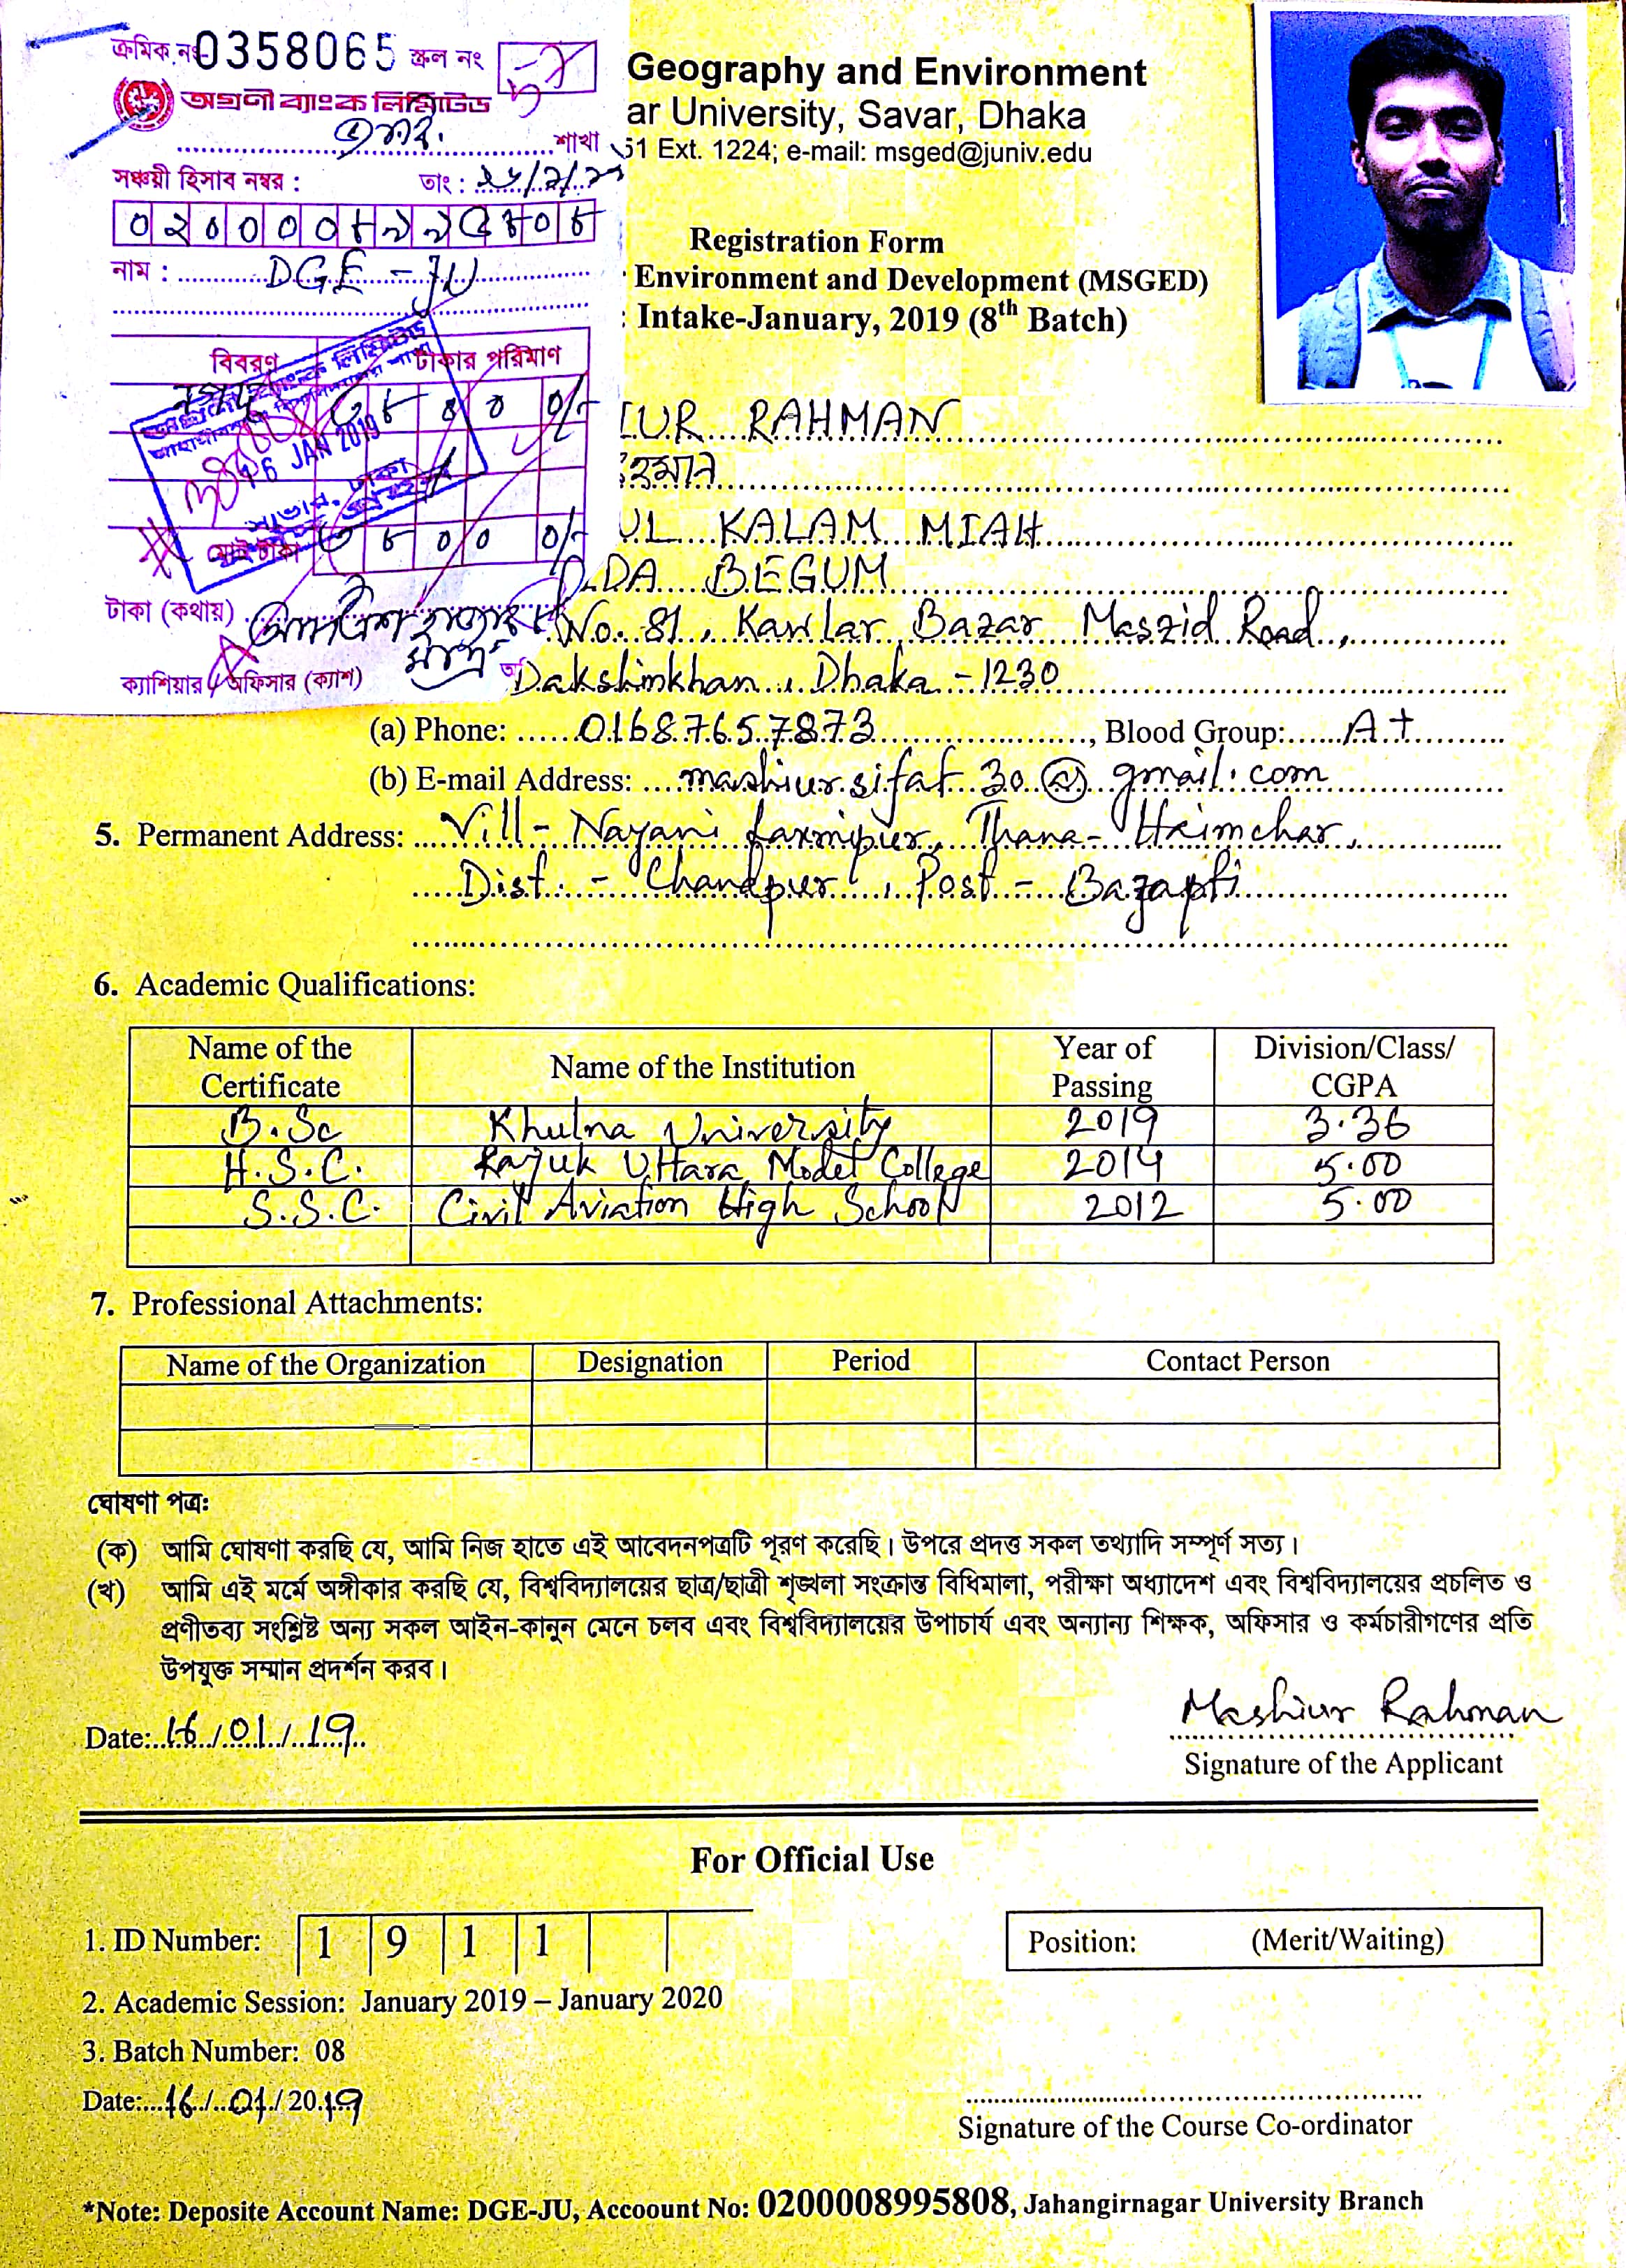 ক্রমিক নং 0358065 স্ক্রল নং
অগ্রণী ব্যাংক লিমিটেড
শাখা
সঞ্চয়ী হিসাব নম্বর : তাং :
নাম : DGE - JU
বিবরণ টাকার পরিমাণ
16 JAN 2019
সাভার, ঢাকা
মোট টাকা
টাকা (কথায়)
মাত্র
ক্যাশিয়ার অফিসার (ক্যাশ)
Geography and Environment
ar University, Savar, Dhaka
51 Ext. 1224; e-mail: msged@juniv.edu
Registration Form
Environment and Development (MSGED)
: Intake-January, 2019 (8th Batch)
IUR RAHMAN
হমান
UL KALAM MIAH
DA BEGUM
No. 81, Kawlar Bazar Maszid Road,
Dakshinkhan, Dhaka - 1230
(a) Phone: 01687657873, Blood Group: A+
(b) E-mail Address: mashiur.sifat30@gmail.com
5. Permanent Address: Vill - Nayani Laxmipur, Thana - Haimchar,
Dist. - Chandpur, Post - Bazapti
6. Academic Qualifications:
Name of the Certificate Name of the Institution Year of Passing Division/Class/ CGPA
B.Sc Khulna University 2019 3.36
H.S.C. Rajuk Uttara Model College 2014 5.00
S.S.C. Civil Aviation High School 2012 5.00
7. Professional Attachments:
Name of the Organization Designation Period Contact Person
ঘোষণা পত্র:
(ক) আমি ঘোষণা করছি যে, আমি নিজ হাতে এই আবেদনপত্রটি পূরণ করেছি। উপরে প্রদত্ত সকল তথ্যাদি সম্পূর্ণ সত্য।
(খ) আমি এই মর্মে অঙ্গীকার করছি যে, বিশ্ববিদ্যালয়ের ছাত্র/ছাত্রী শৃঙ্খলা সংক্রান্ত বিধিমালা, পরীক্ষা অধ্যাদেশ এবং বিশ্ববিদ্যালয়ের প্রচলিত ও
প্রণীতব্য সংশ্লিষ্ট অন্য সকল আইন-কানুন মেনে চলব এবং বিশ্ববিদ্যালয়ের উপাচার্য এবং অন্যান্য শিক্ষক, অফিসার ও কর্মচারীগণের প্রতি
উপযুক্ত সম্মান প্রদর্শন করব।
Mashiur Rahman
Date: 16/01/19
Signature of the Applicant
For Official Use
1. ID Number: 1 9 1 1
Position: (Merit/Waiting)
2. Academic Session: January 2019 – January 2020
3. Batch Number: 08
Date: 16/01/2019
Signature of the Course Co-ordinator
*Note: Deposite Account Name: DGE-JU, Accoount No: 0200008995808, Jahangirnagar University Branch